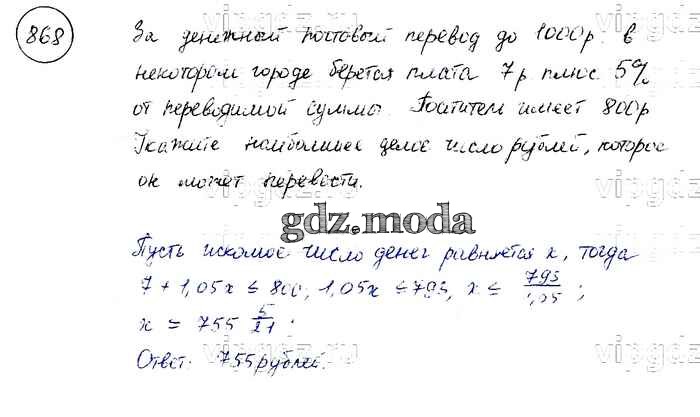 868
За денежный почтовый перевод до 1000р. в
некотором городе берется плата 7р плюс 5%
от переводимой суммы. Посетитель имеет 800р
Укажите наибольшее целое число рублей, которое
он может перевести.
gdz.moda
Пусть искомое число денег равняется x, тогда
7 + 1,05x ≤ 800, 1,05x ≤ 793, x ≤ 793/1,05 ;
x = 755 5/21 ;
Ответ: 755 рублей.
vipgdz.ru